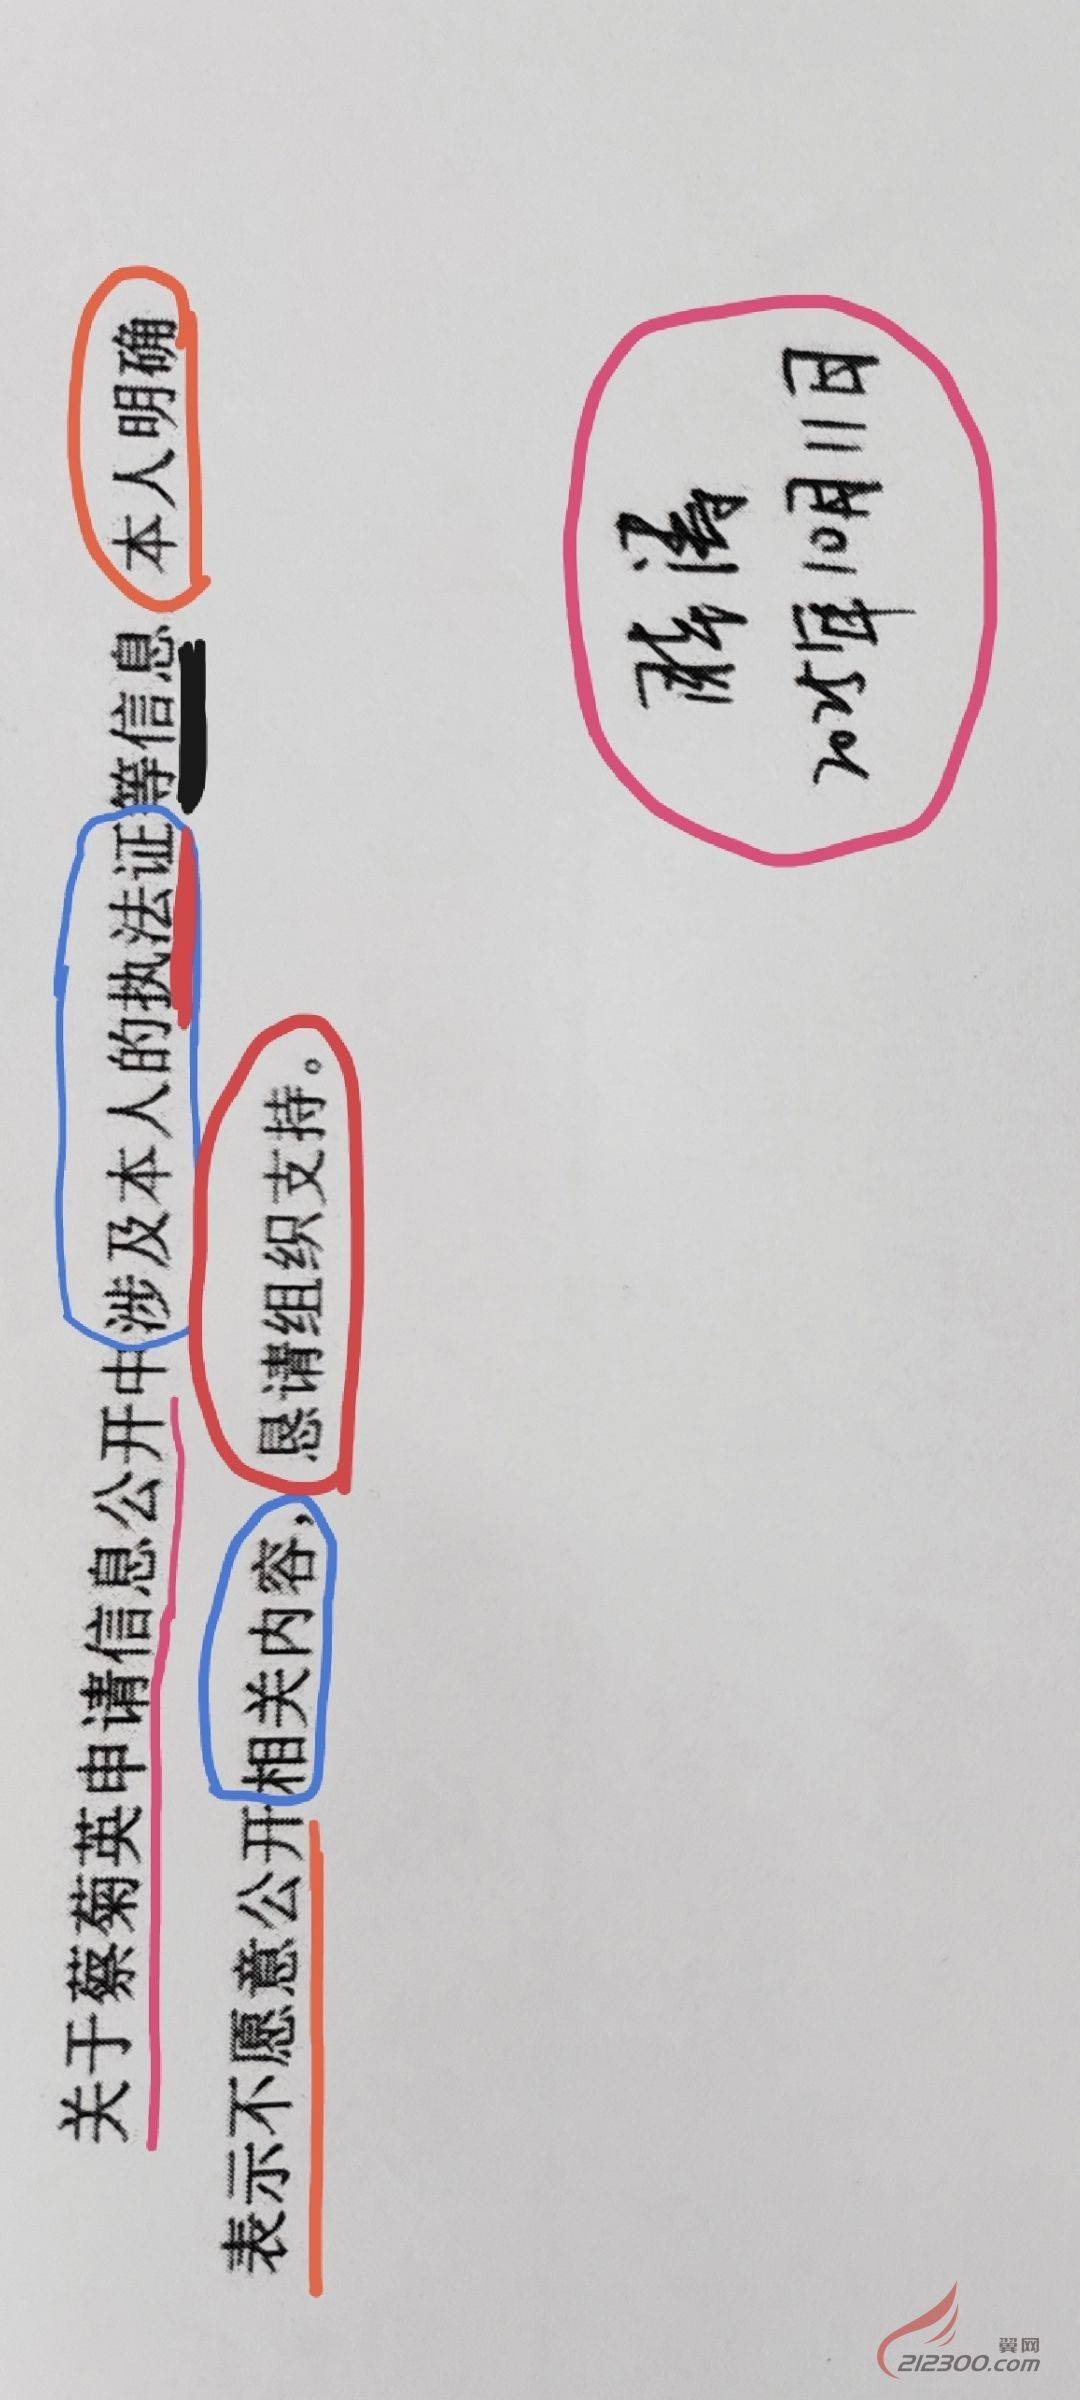 关于蔡菊英申请信息公开中涉及本人的执法证等信息 本人明确
表示不愿意公开相关内容，恳请组织支持。
蒋涛
2025年10月11日
翼网
212300.com